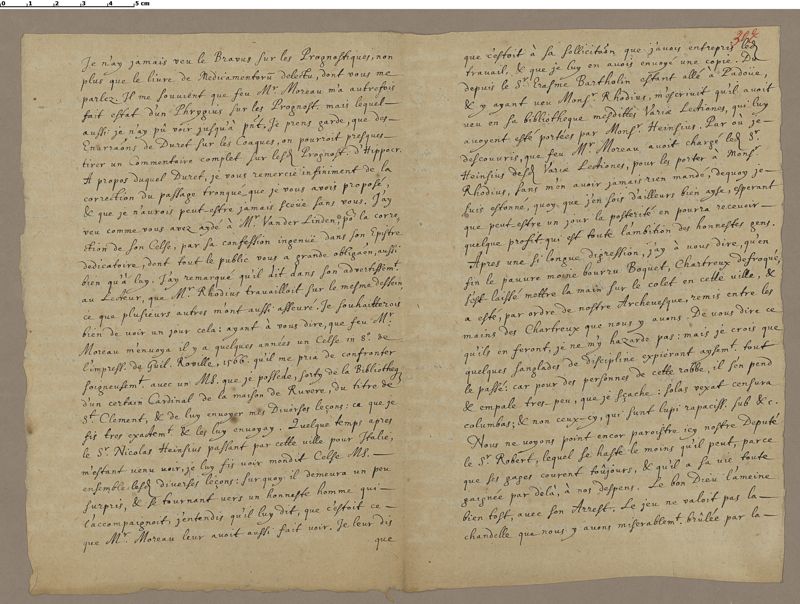 Je n'ay jamais veu le Bravus sur les Prognostiques, non
plus que le livre de Medicamentorũ delectu, dont vous me
parlez. Il me souvient que feu Mr. Moreau m'a autrefois
fait estat d'un Phrygius sur les Prognost. mais lequel
aussi je n'ay pû voir jusqu'à pñt. Je prens garde, que des
Enarraõns de Duret sur les Coaques, on pourroit presques
tirer un Commentaire complet sur lesd. Prognost. d'Hippocr.
A propos duquel Duret, je vous remercie infiniment de la
correction du passage tronqué, que je vous avois proposé,
& que je n'aurois peut-estre jamais sceüe sans vous. J'ay
veu comme vous avez aydé à Mr. Vander Linden, po. la corre-
ction de son Celse, par sa confession ingenuë dans son Epistre
dedicatoire, dont tout le public vous a grande obligaõn, aussi
bien qu'à luy. J'ay remarqué qu'il dit dans son advertissemt.
au Lecteur, que Mr. Rhodius travailloit sur le mesme dessein
ce que plusieurs autres m'ont aussi asseuré. Je souhaitterois
bien de voir un jour cela: ayant à vous dire, que feu Mr.
Moreau m'envoya il y a quelques années un Celse in 8o. de
l'impress. de Guil. Roville, 1566. qu'il me pria de confronter
soigneusemt. avec un MS. que je possede, sorty de la Biblitheq.
d'un certain Cardinal de la maison de Ruvere, du titre de
St. Clement, & de luy envoyer mes Diverses leçons: ce que je
fis tres exactemt. & les luy envoyay. Quelque temps apres
le Sr. Nicolas Heinsius passant par cette ville pour Italie,
m'estant venu voir, je luy fis voir mondit Celse MS.
ensemble lesd. diverses leçons: sur quoy il demeura un peu
surpris, & se tournant vers un honneste homme qui
l'accompagnoit, j'entendis qu'il luy dit, que c'estoit ce
que Mr. Moreau leur avoit aussi fait voir. Je leur dis
que
que c'estoit à sa sollicitaõn que j'avois entrepris led.
travail, & que je luy en avois envoyé une copie. Du
depuis le Sr. Erasme Bartholin estant allé à Padoüe,
& y ayant veu Monsr. Rhodius, m'escrivit qu'il avoit
veu en sa bibliotheque mesdittes Variæ Lectiones, qui luy
avoyent esté portées par Monsr. Heinsius. Par où je
descouvris, que feu Mr. Moreau avoit chargé led. Sr.
Heinsius desd. Variæ Lectiones, pour les porter à Monsr.
Rhodius, sans m'en avoir jamais rien mandé, dequoy je
suis estonné, quoy que j'en sois d'ailleurs bien ayse, esperant
que peut-estre un jour la posterité en pourra recevoir
quelque profit qui est toute l'ambition des honnestes gens.
Apres une si longue digression, j'ay à vous dire, qu'en
fin le pauvre moine bourru Boquet, Chartreux defroqué,
s'est laissé mettre la main sur le colet en cette ville, &
a esté, par ordre de nostre Archevesque, remis entre les
mains des Chartreux que nous y avons. De vous dire ce
qu'ils en feront, je ne m'y hazarde pas: mais je crois que
quelques sanglades de discipline expieront aysemt. tout
le passé: car pour des personnes de cette robbe, il s'en pend
& empale tres-peu, que je sçache: solas vexat censura
columbas; & non ceux-cy, qui sunt lupi rapaciss. sub &c.
Nous ne voyons point encor paroistre icy nostre Deputé
le Sr. Robert, lequel se haste le moins qu'il peut, parce
que ses gages courent toûjours, & qu'il a sa vie toute
gaignée par delà, à nos despens. Le bon Dieu l'ameine
bien tost, avec son Arrest. Le jeu ne valoit pas la
chandelle que nous y avons miserablemt. brûlée par la